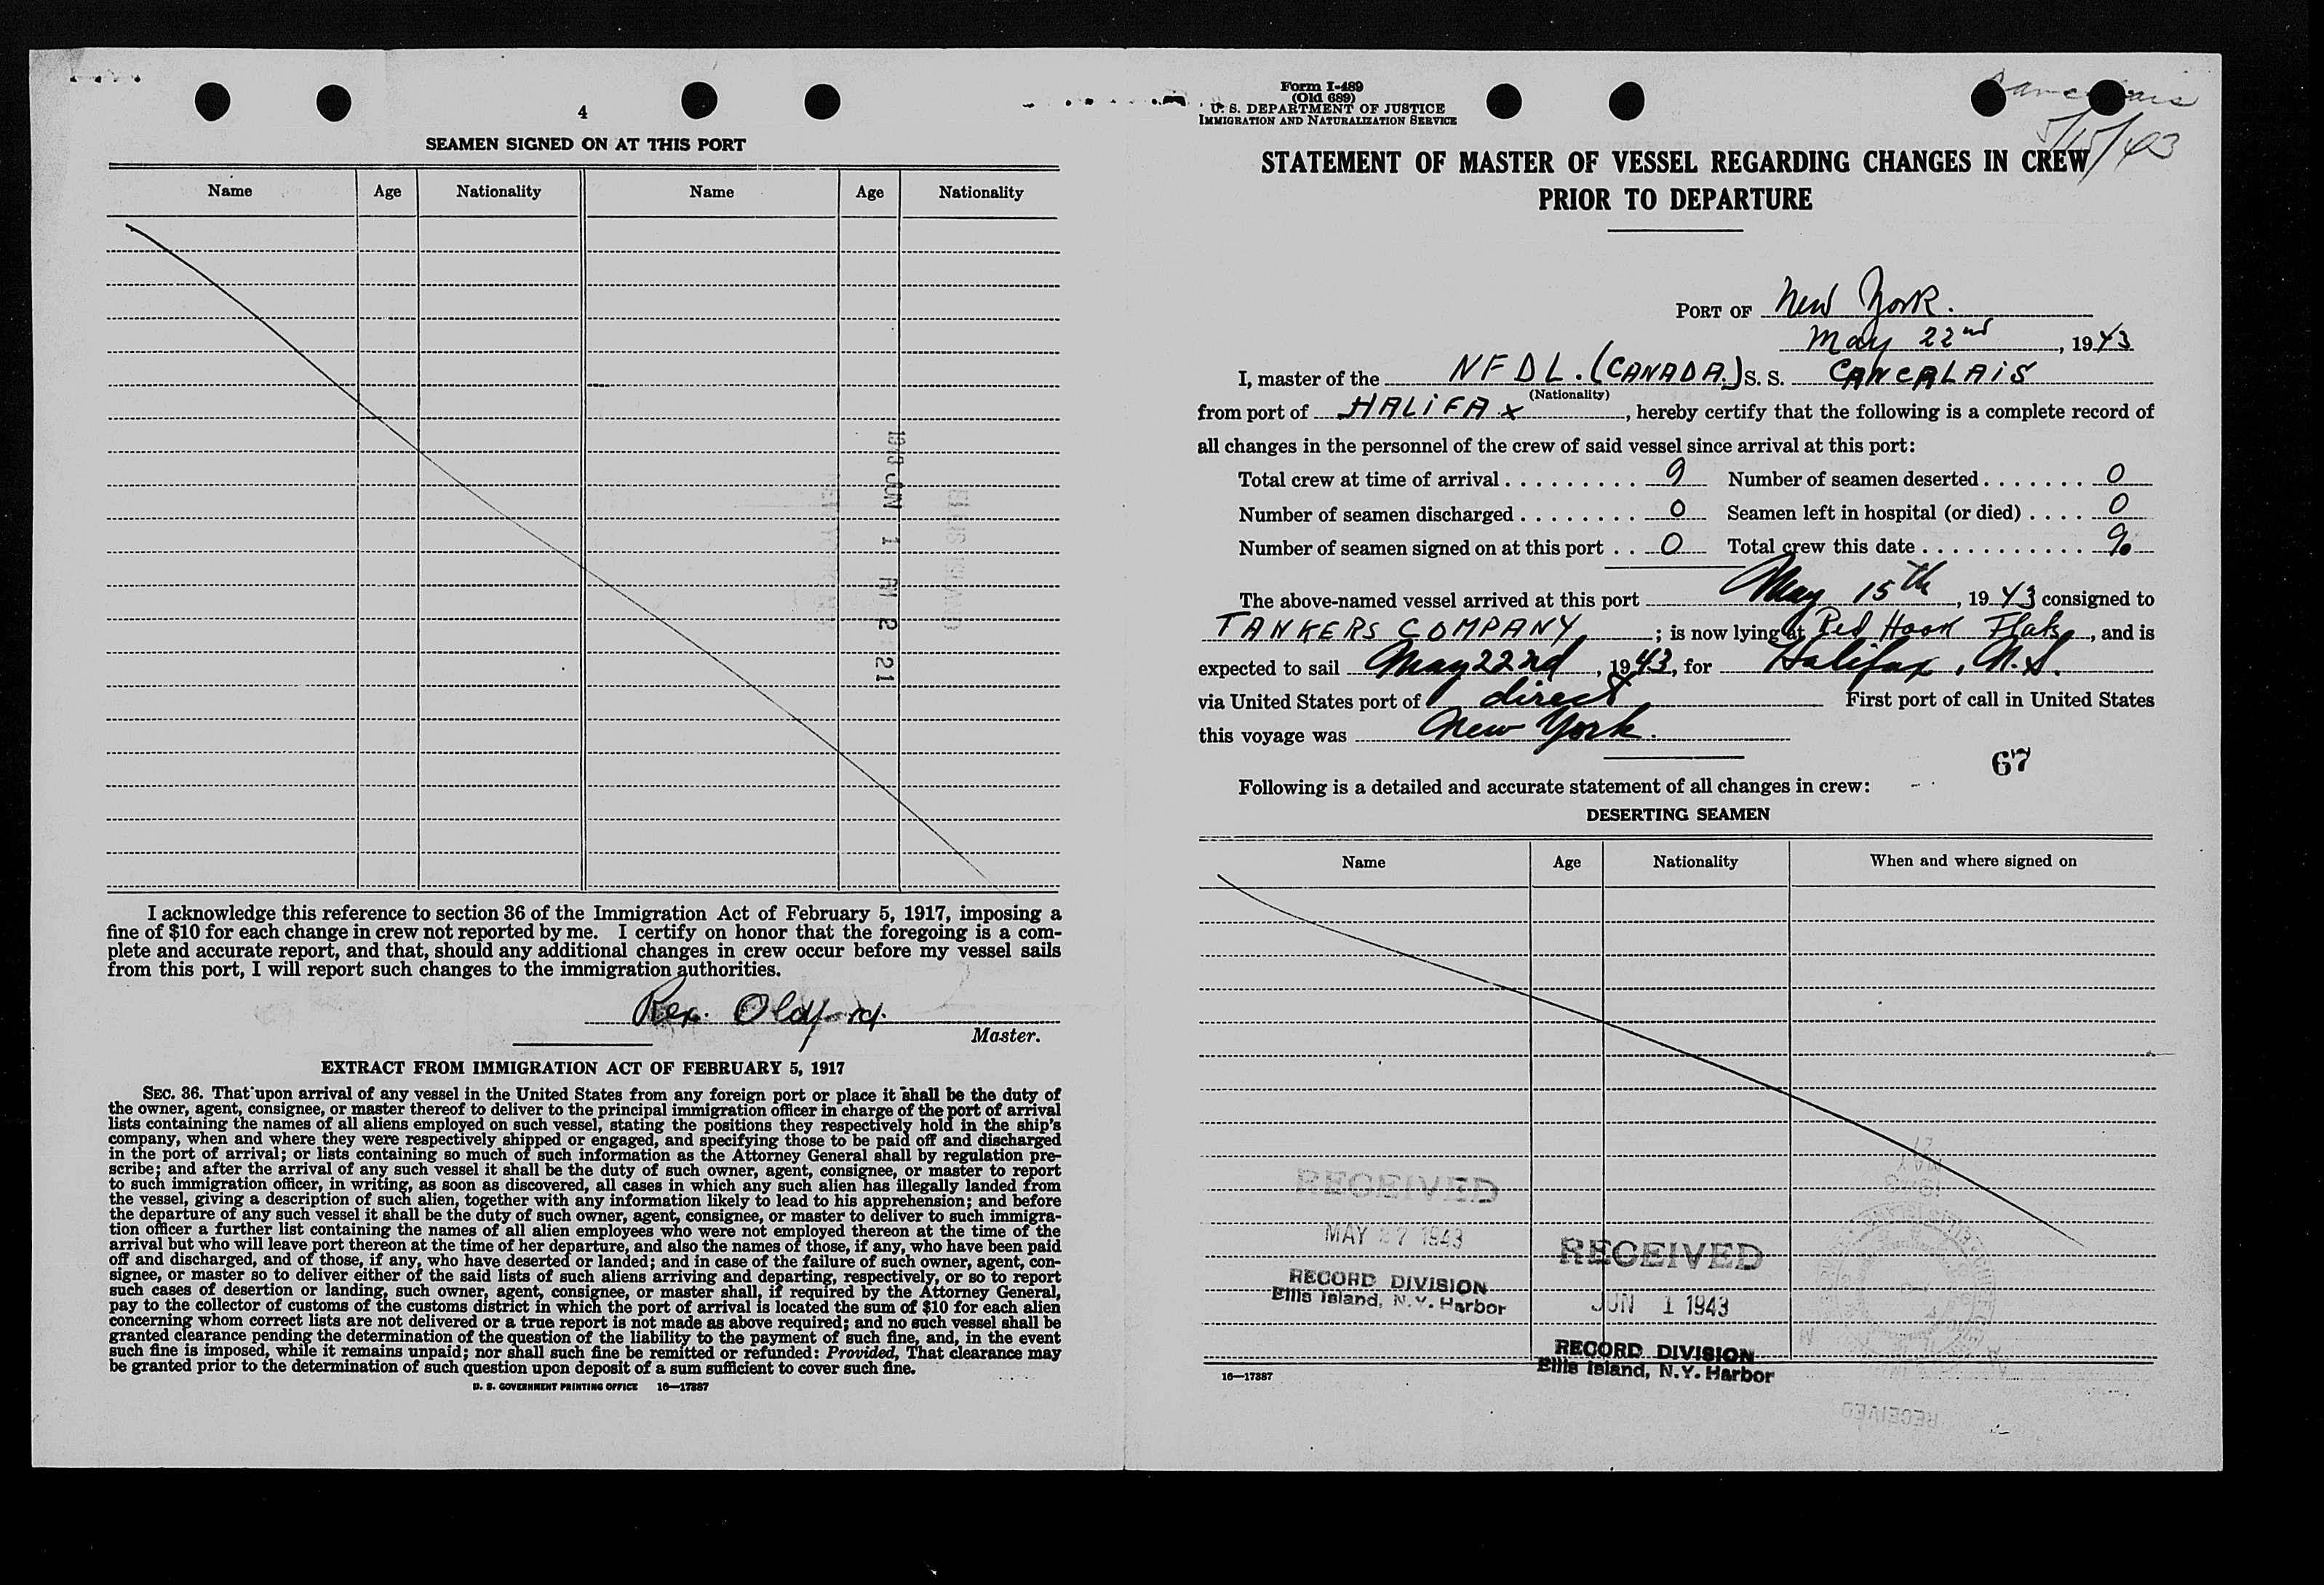 4
SEAMEN SIGNED ON AT THIS PORT
Name Age Nationality Name Age Nationality
1943 JUN 1 PM 2 21
I acknowledge this reference to section 36 of the Immigration Act of February 5, 1917, imposing a
fine of $10 for each change in crew not reported by me. I certify on honor that the foregoing is a com-
plete and accurate report, and that, should any additional changes in crew occur before my vessel sails
from this port, I will report such changes to the immigration authorities.
Rex. Oldford.
Master.
EXTRACT FROM IMMIGRATION ACT OF FEBRUARY 5, 1917
SEC. 36. That upon arrival of any vessel in the United States from any foreign port or place it shall be the duty of
the owner, agent, consignee, or master thereof to deliver to the principal immigration officer in charge of the port of arrival
lists containing the names of all aliens employed on such vessel, stating the positions they respectively hold in the ship's
company, when and where they were respectively shipped or engaged, and specifying those to be paid off and discharged
in the port of arrival; or lists containing so much of such information as the Attorney General shall by regulation pre-
scribe; and after the arrival of any such vessel it shall be the duty of such owner, agent, consignee, or master to report
to such immigration officer, in writing, as soon as discovered, all cases in which any such alien has illegally landed from
the vessel, giving a description of such alien, together with any information likely to lead to his apprehension; and before
the departure of any such vessel it shall be the duty of such owner, agent, consignee, or master to deliver to such immigra-
tion officer a further list containing the names of all alien employees who were not employed thereon at the time of the
arrival but who will leave port thereon at the time of her departure, and also the names of those, if any, who have been paid
off and discharged, and of those, if any, who have deserted or landed; and in case of the failure of such owner, agent, con-
signee, or master so to deliver either of the said lists of such aliens arriving and departing, respectively, or so to report
such cases of desertion or landing, such owner, agent, consignee, or master shall, if required by the Attorney General,
pay to the collector of customs of the customs district in which the port of arrival is located the sum of $10 for each alien
concerning whom correct lists are not delivered or a true report is not made as above required; and no such vessel shall be
granted clearance pending the determination of the question of the liability to the payment of such fine, and, in the event
such fine is imposed, while it remains unpaid; nor shall such fine be remitted or refunded: Provided, That clearance may
be granted prior to the determination of such question upon deposit of a sum sufficient to cover such fine.
U. S. GOVERNMENT PRINTING OFFICE 16—17387
Form I-489
(Old 689)
U. S. DEPARTMENT OF JUSTICE
IMMIGRATION AND NATURALIZATION SERVICE
5/15/43
STATEMENT OF MASTER OF VESSEL REGARDING CHANGES IN CREW
PRIOR TO DEPARTURE
PORT OF New York.
May 22nd, 1943
I, master of the NFDL. (CANADA.) S. S. CANCALAIS
(Nationality)
from port of HALIFAX, hereby certify that the following is a complete record of
all changes in the personnel of the crew of said vessel since arrival at this port:
Total crew at time of arrival . . . . . . . . . 9 Number of seamen deserted . . . . . . . 0
Number of seamen discharged . . . . . . . . 0 Seamen left in hospital (or died) . . . . 0
Number of seamen signed on at this port . . 0 Total crew this date . . . . . . . . . . . 9.
The above-named vessel arrived at this port May 15th, 1943 consigned to
TANKERS COMPANY; is now lying at Red Hook Flats, and is
expected to sail May 22nd, 1943, for Halifax, N.S.
via United States port of direct First port of call in United States
this voyage was New York.
67
Following is a detailed and accurate statement of all changes in crew:
DESERTING SEAMEN
Name Age Nationality When and where signed on
RECEIVED
MAY 27 1943
RECORD DIVISION
Ellis Island, N.Y. Harbor
RECEIVED
JUN 1 1943
RECORD DIVISION
Ellis Island, N.Y. Harbor
16—17387
RECEIVED